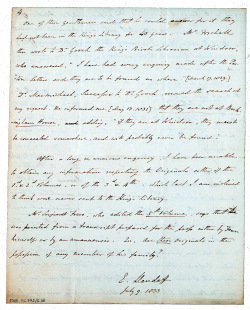 One of these gentlemen said that he could answer for it they
had not been in the King's Library for 40 years. Mr.
then wrote to Dr. the King's Librarian at Windsor,
who answered, I have made every enquiry made after the
letters and they are to be found no where (April 17. 1833)
Dr. Successor to Dr. renewed the search at
my request. He informed me (May 19. 1833) that they are not at
House, and adding, "If they are at Windsor, they must
be concealed somewhere, and will probably never be found."
After a long & anxious enquiry I have been unable
to obtain any information respecting the Originals either of the
1st & 2d Volumes, or of the 3d & 4th, which last I am inclined
to think were never sent to the King's Library.
Mr. who edited the 5th Volume, says that
are printed from a transcript prepared for the press either by
himself or by an amanuensis. Are Originals in the
possession of any member of his family?
E.
July 9. 1833